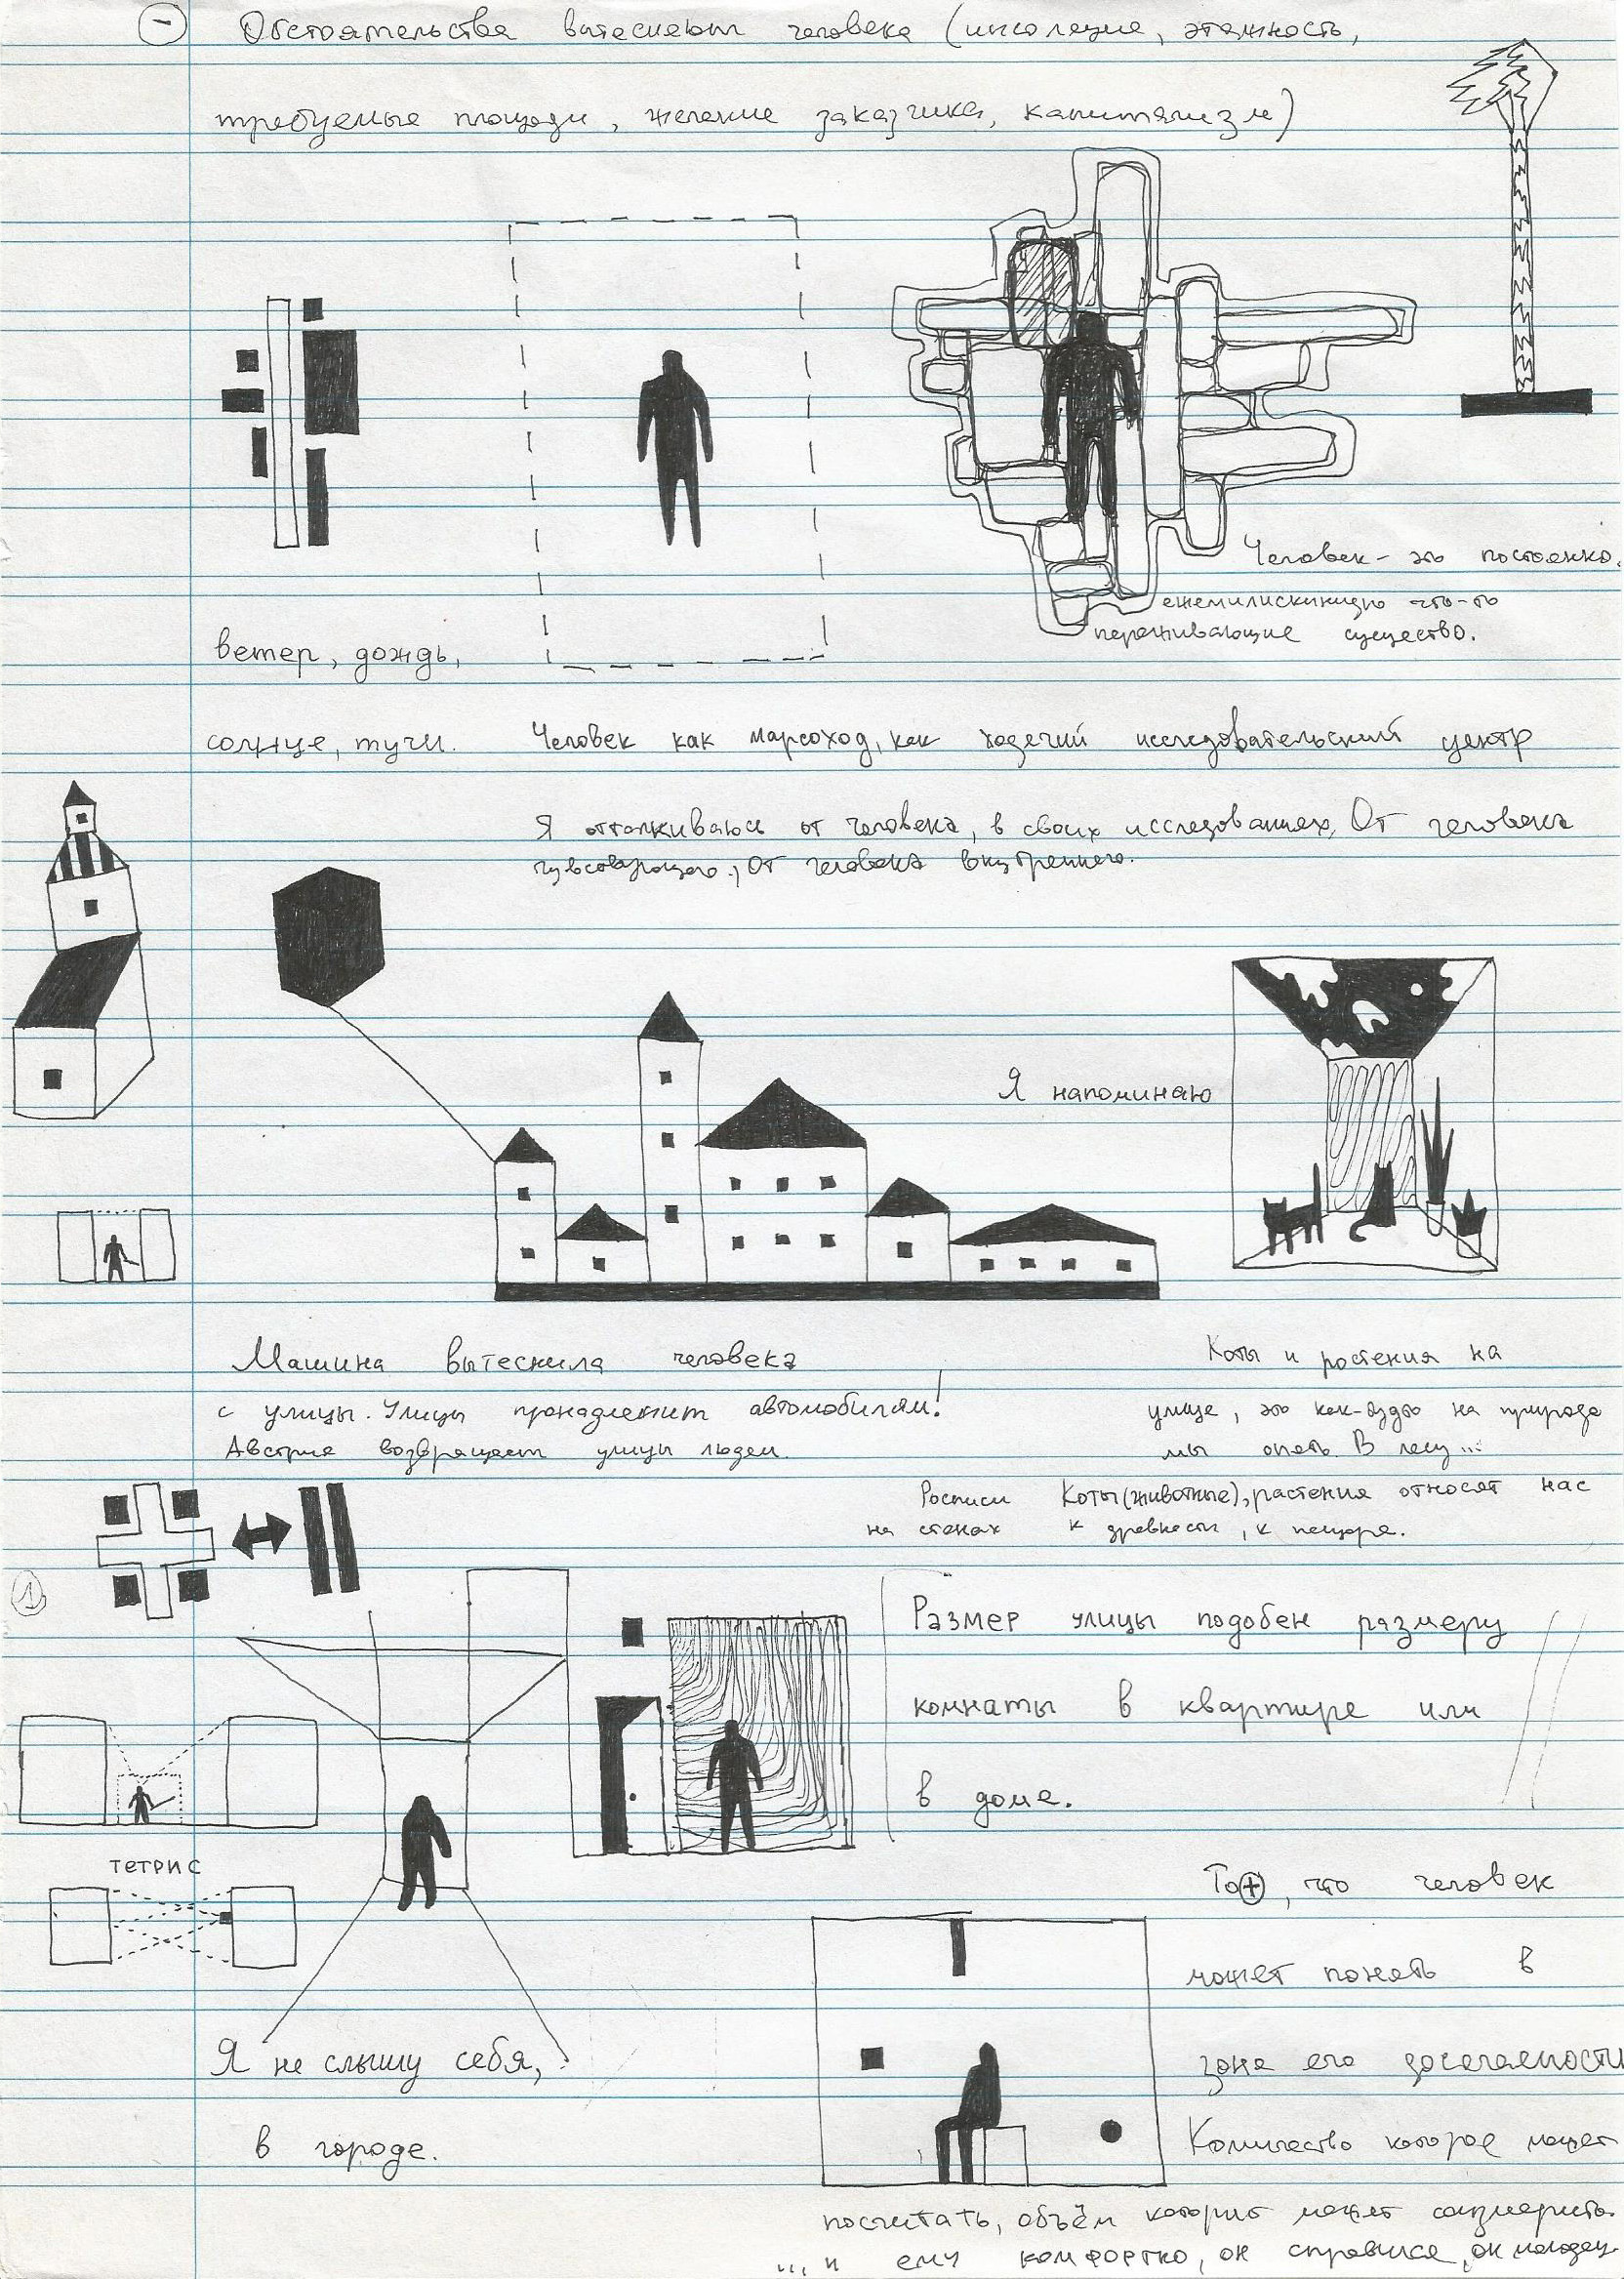 (-) Обстоятельства вытесняют человека (инсоляция, этажность,
требуемые площади, желение заказчика, капитялизм)
Человек - это постоянно,
ежемилисикунидно что-то
переживающие существо.
ветер, дождь,
солнце, тучи.
Человек как марсоход, как ходячий исследовательский центр
Я отталкиваюсь от человека, в своих исследованиях, От человека
чувсвтвующего, от человека внутреннего.
Я напоминаю
Машина вытеснила человека
с улицы. Улицы пренадлежит автомобилям!
Австрия возвращает улицы людям.
Коты и ростения на
улице, это как-будто на природе
мы опять. В лесу...
Росписи Коты (животные), растения относят нас
на стенах к древности, к пещере.
1
Размер улицы подобен размеру
комнаты в квартире или
в доме.
ТЕТРИС
То(+), что человек
может понять в
зоне его досегаемости
Количество которое может
посчитать, объём которит может соизмерить
... и ему комфортно, он справился, он молодец
Я не слышу себя,
в городе.